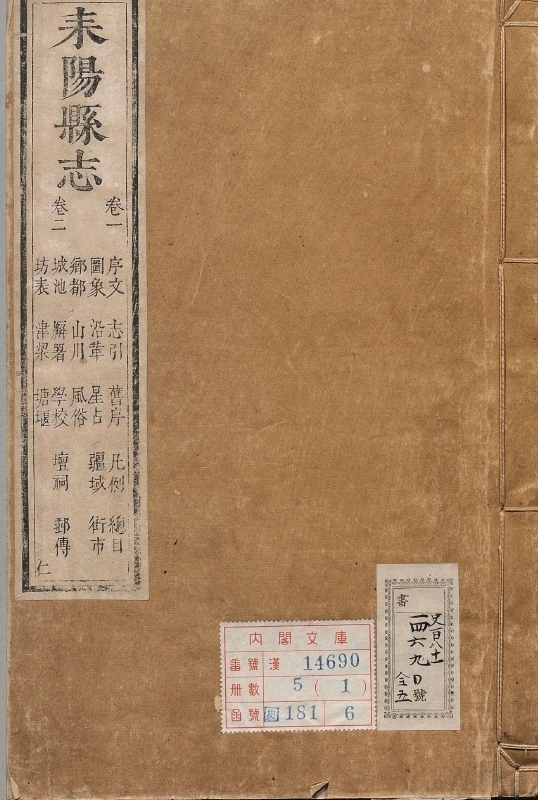 耒陽縣志
卷一
序文 志引 舊序 凡例 總目
圖象 沿革 星占 疆域 街市
鄉都 山川 風俗
卷二
城池 廨署 學校 壇祠 郵傳
坊表 津梁 塘堰
仁
內閣文庫
番號 漢 14690
冊數 5 (1)
函號 181 6
書
史百八十一
一四六九〇號
全五